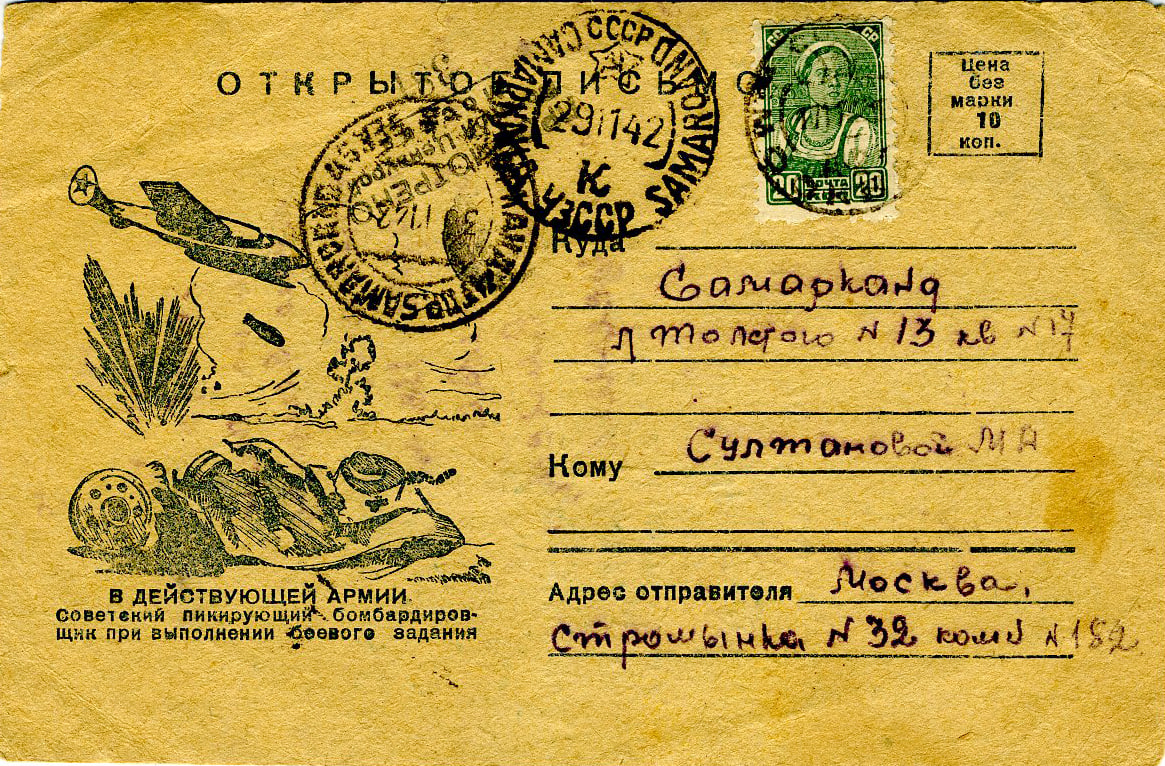 ОТКРЫТОЕ ПИСЬМО
Цена
без
марки
10
коп.
СССР
SAMARQAND
29 11 42
К
УЗССР
SAMARQAND
ПОЧТА
Куда
Самарканд
Л Толстого N 13 кв N 17
Кому
Султановой МА
Адрес отправителя Москва,
Стромынка N 32 комн N 182
В ДЕЙСТВУЮЩЕЙ АРМИИ.
Советский пикирующий бомбардиров-
щик при выполнении боевого задания